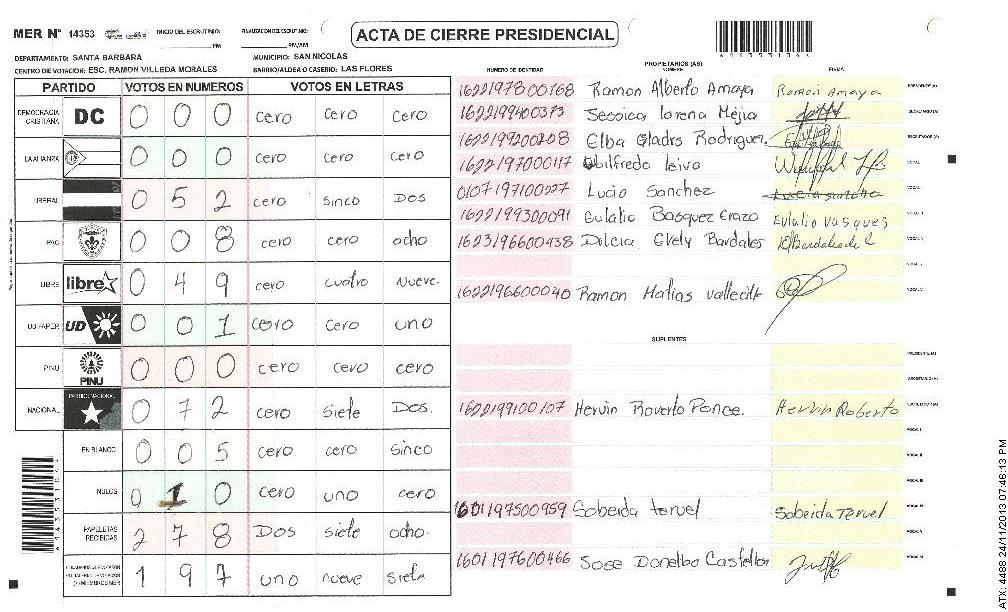 MER N° 14353
INICIO DEL ESCRUTINIO: PM
FINALIZACION DEL ESCRUTINIO: PM/AM
ACTA DE CIERRE PRESIDENCIAL
DEPARTAMENTO: SANTA BARBARA
MUNICIPIO: SAN NICOLAS
CENTRO DE VOTACION: ESC. RAMON VILLEDA MORALES
BARRIO/ALDEA O CASERIO: LAS FLORES
PARTIDO VOTOS EN NUMEROS VOTOS EN LETRAS
DEMOCRACIA CRISTIANA DC 0 0 0 cero cero cero
LA ALIANZA 0 0 0 cero cero cero
LIBERAL 0 5 2 cero sinco Dos
PAC 0 0 8 cero cero ocho
LIBRE libre 0 4 9 cero cuatro Nueve.
UD FAPER UD 0 0 1 cero cero uno
PINU PINU 0 0 0 cero cero cero
NACIONAL PARTIDO NACIONAL 0 7 2 cero siete Dos.
EN BLANCO 0 0 5 cero cero sinco
NULOS 0 1 0 cero uno cero
PAPELETAS RECIBIDAS 2 7 8 Dos siete ocho.
1 9 7 uno nueve siete
NUMERO DE IDENTIDAD PROPIETARIOS (AS) NOMBRE FIRMA
1622197800168 Ramon Alberto Amaya Ramon Amaya PRESIDENTE (A)
1622199400373 Jessica lorena Mejia SECRETARIO (A)
1622199200208 Elba Gladis Rodriguez. ESCRUTADOR (A)
1622197000117 Wilfredo leiva VOCAL I
0107197100227 Lucio Sanchez VOCAL
1622199300091 Eulalio Basquez Erazo Eulalio Vasques VOCAL
1623196600438 Dilcia Evely Bardales VOCAL
VOCAL
1622196600040 Ramon Matias vallecillo VOCAL
SUPLENTES
PRESIDENTE (A)
SECRETARIO (A)
1622199100107 Hervin Roverto Ponce. Hervin Roberto ESCRUTADOR (A)
VOCAL I
VOCAL II
VOCAL III
1601197500959 Sobeida teruel Sobeida Teruel
VOCAL V
1601197600466 Jose Donelbo Castellon VOCAL
ATX: 4488 24/11/2013 07:46:13 PM